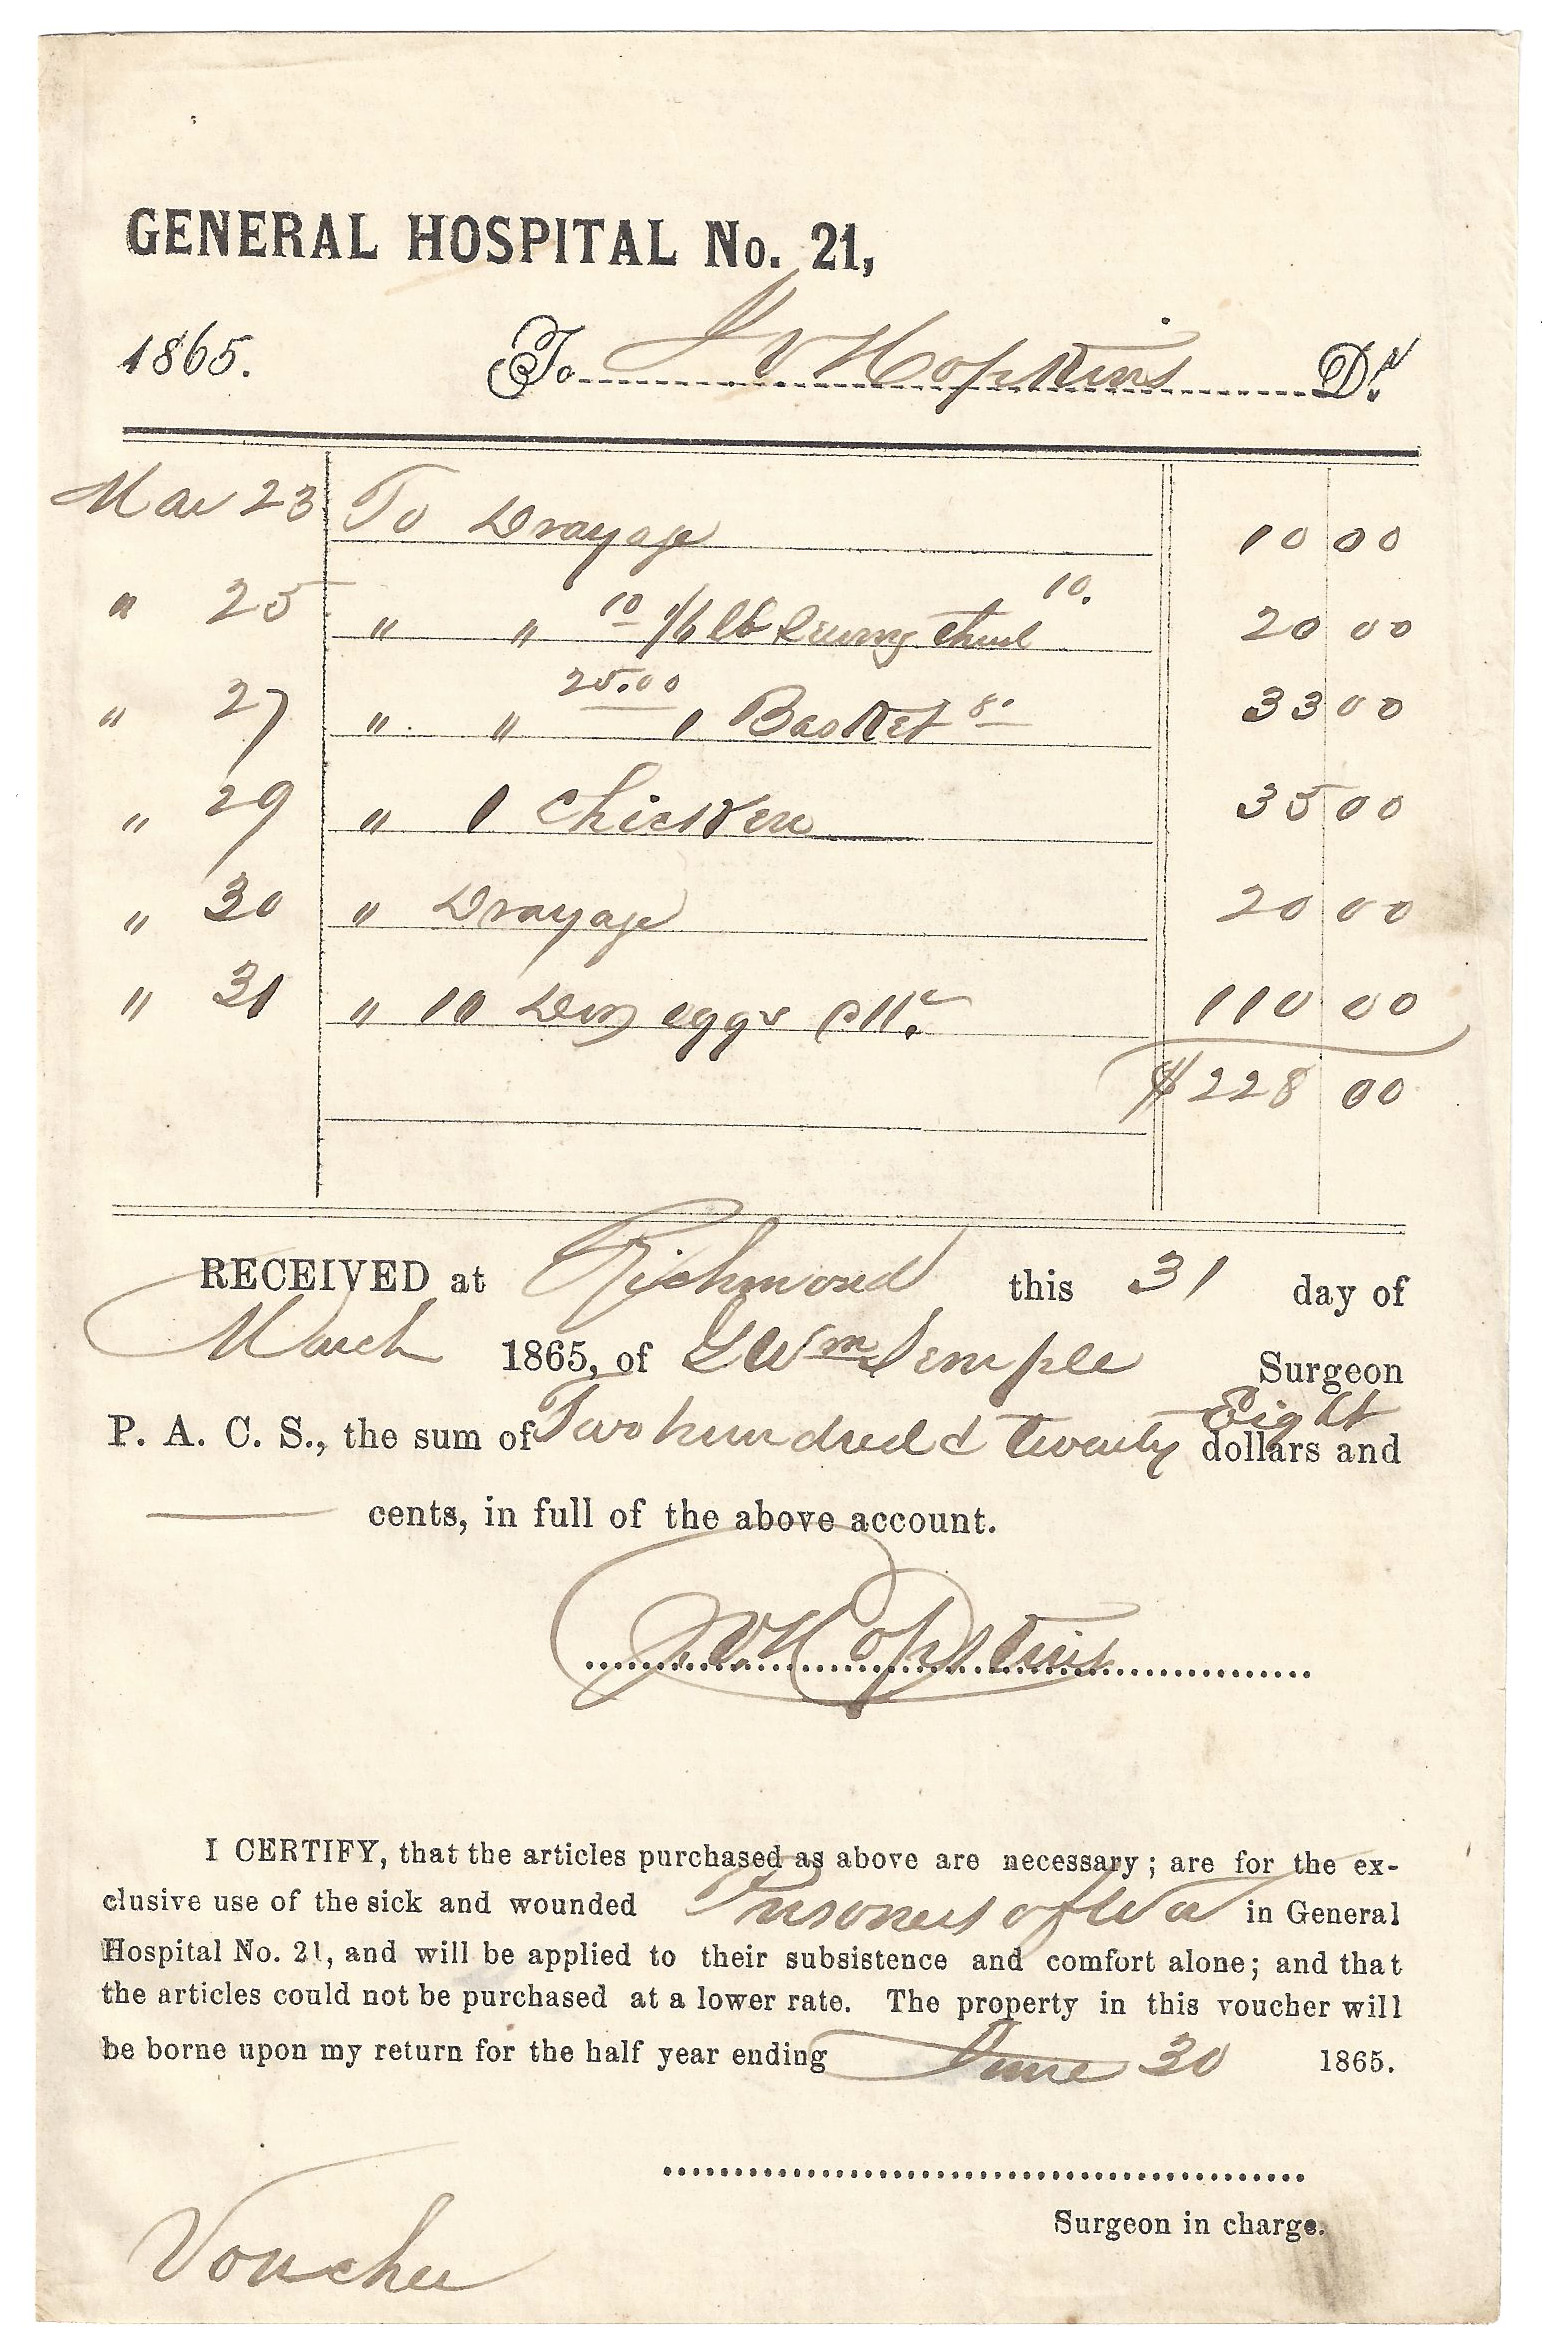 GENERAL HOSPITAL No. 21,
1865. To J V Hopkins Dr.
Mar 23 To Drayage 10 00
" 25 " " 10 1/6 lb Sewing thread 10. 20 00
" 27 " " 25.00 1 Basket 8. 33 00
" 29 " 1 Chicken 35 00
" 30 " Drayage 20 00
" 31 " 10 Doz eggs @ 11. 110 00
$ 228 00
RECEIVED at Richmond this 31 day of
March 1865, of G Wm Semple Surgeon
P. A. C. S., the sum of Two hundred & twenty Eight dollars and
cents, in full of the above account.
J V Hopkins
I CERTIFY, that the articles purchased as above are necessary; are for the ex-
clusive use of the sick and wounded Prisoners of War in General
Hospital No. 21, and will be applied to their subsistence and comfort alone; and that
the articles could not be purchased at a lower rate. The property in this voucher will
be borne upon my return for the half year ending June 30 1865.
Surgeon in charge.
Voucher